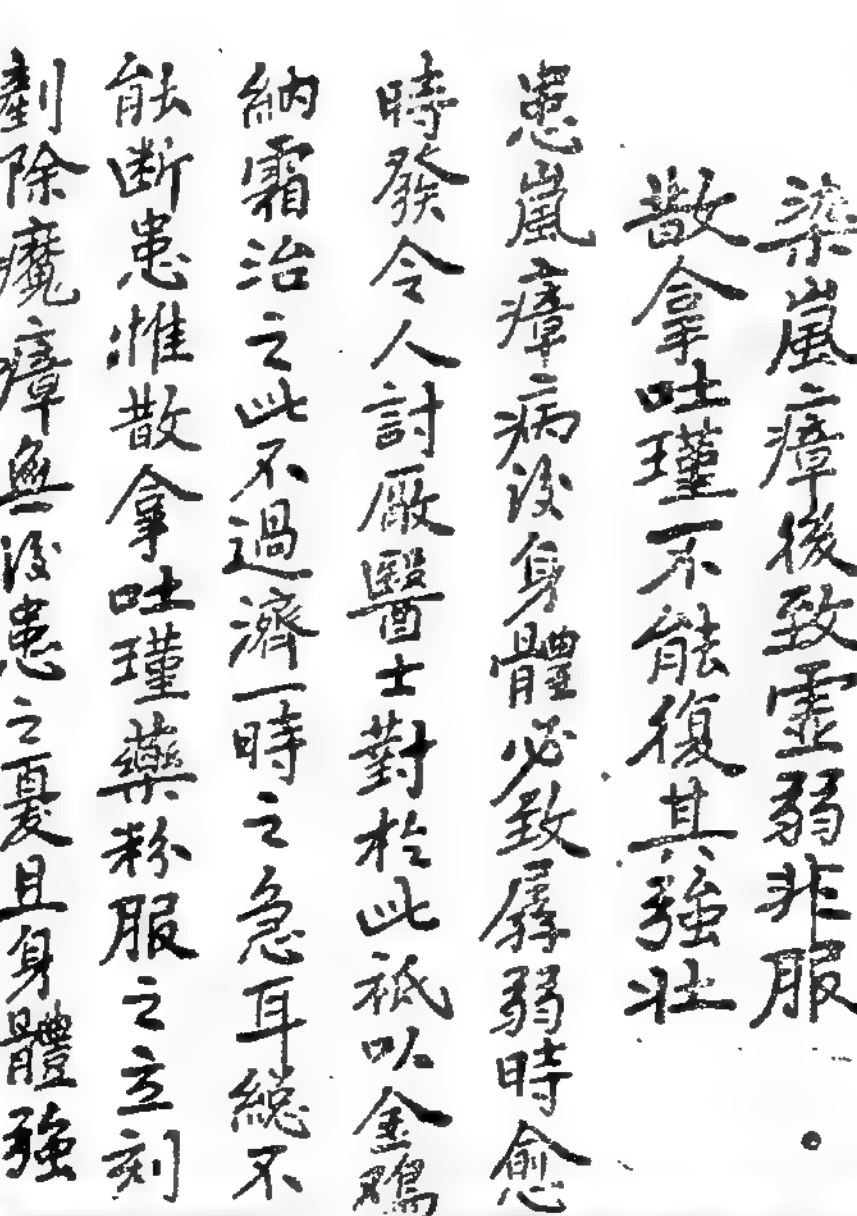 染嵐瘴後致虛弱非服
散拿吐瑾不能復其強壯
患嵐瘴病後身體必致孱弱時愈
時發令人討厭醫士對於此祗以金雞
納霜治之此不過濟一時之急耳總不
能断患惟散拿吐瑾藥粉服之立刻
剷除魔瘴無後患之憂且身體強